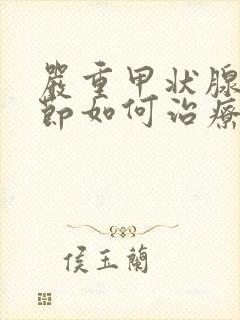 嚴重甲狀腺
節如何治療
侯玉蘭